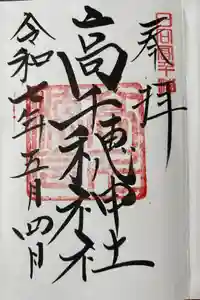 奉拝
高千穂神社
令和七年五月四日